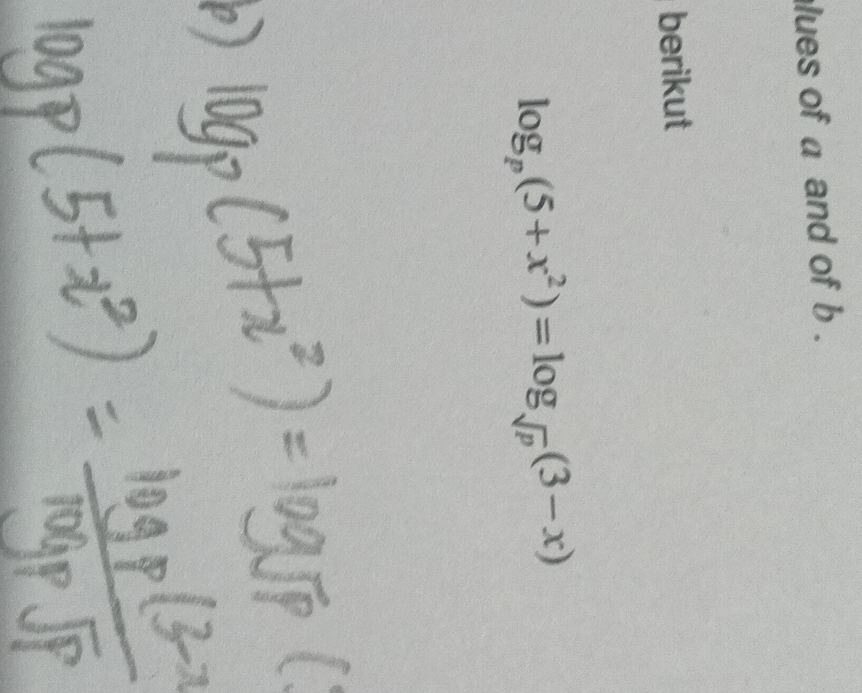 alues of a and of b.
berikut
logₚ(5+x²)=log√p(3−x)
b) log p (5+x²) = log √p (
log p (5+x²) = log p (3-x / log p √p